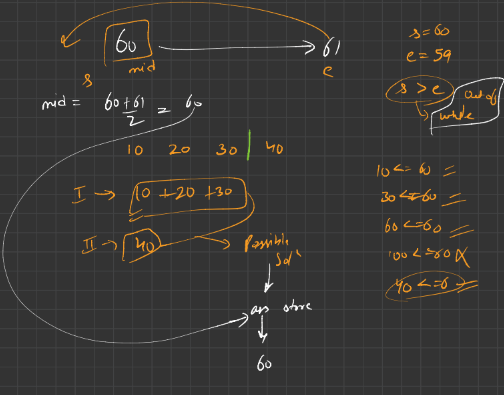 60 → 61
mid
s
e
mid = 60+61/2 = 60
10 20 30 | 40
I → 10 + 20 + 30
II → 40 → Possible Solⁿ
ans store
60
s = 60
e = 59
s > e
out of while
10 <= 60
30 <= 60
60 <= 60
100 <= 60 X
40 <= 60